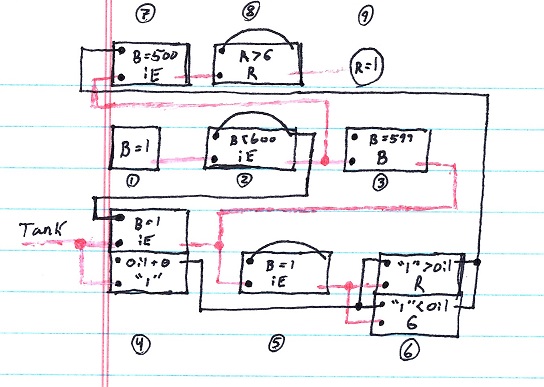 ⑦ ⑧ ⑨
B=500
iE
A>6
R
R=1
B=1
B<600
iE
B=599
B
① ② ③
Tank
B=1
iE
oil+0
"1"
B=1
iE
"1">oil
R
"1"<oil
G
④ ⑤ ⑥